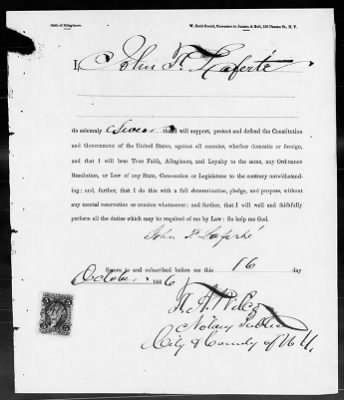 Oath of Allegiance. W. Reid Gould, Successor to Jansen & Bell, 158 Nassau St., N. Y.
I, John F. Laferté
do solemnly Swear that I will support, protect and defend the Constitution
and Government of the United States, against all enemies, whether domestic or foreign,
and that I will bear True Faith, Allegiance, and Loyalty to the same, any Ordinance
Resolution, or Law of any State, Convention or Legislature to the contrary notwithstand-
ing; and, further, that I do this with a full determination, pledge, and purpose, without
any mental reservation or evasion whatsoever; and further, that I will well and faithfully
perform all the duties which may be required of me by Law: So help me God.
John F. Laferté
Sworn to and subscribed before me this 16 day
October 1866
Notary Public
City & County of N.Y.